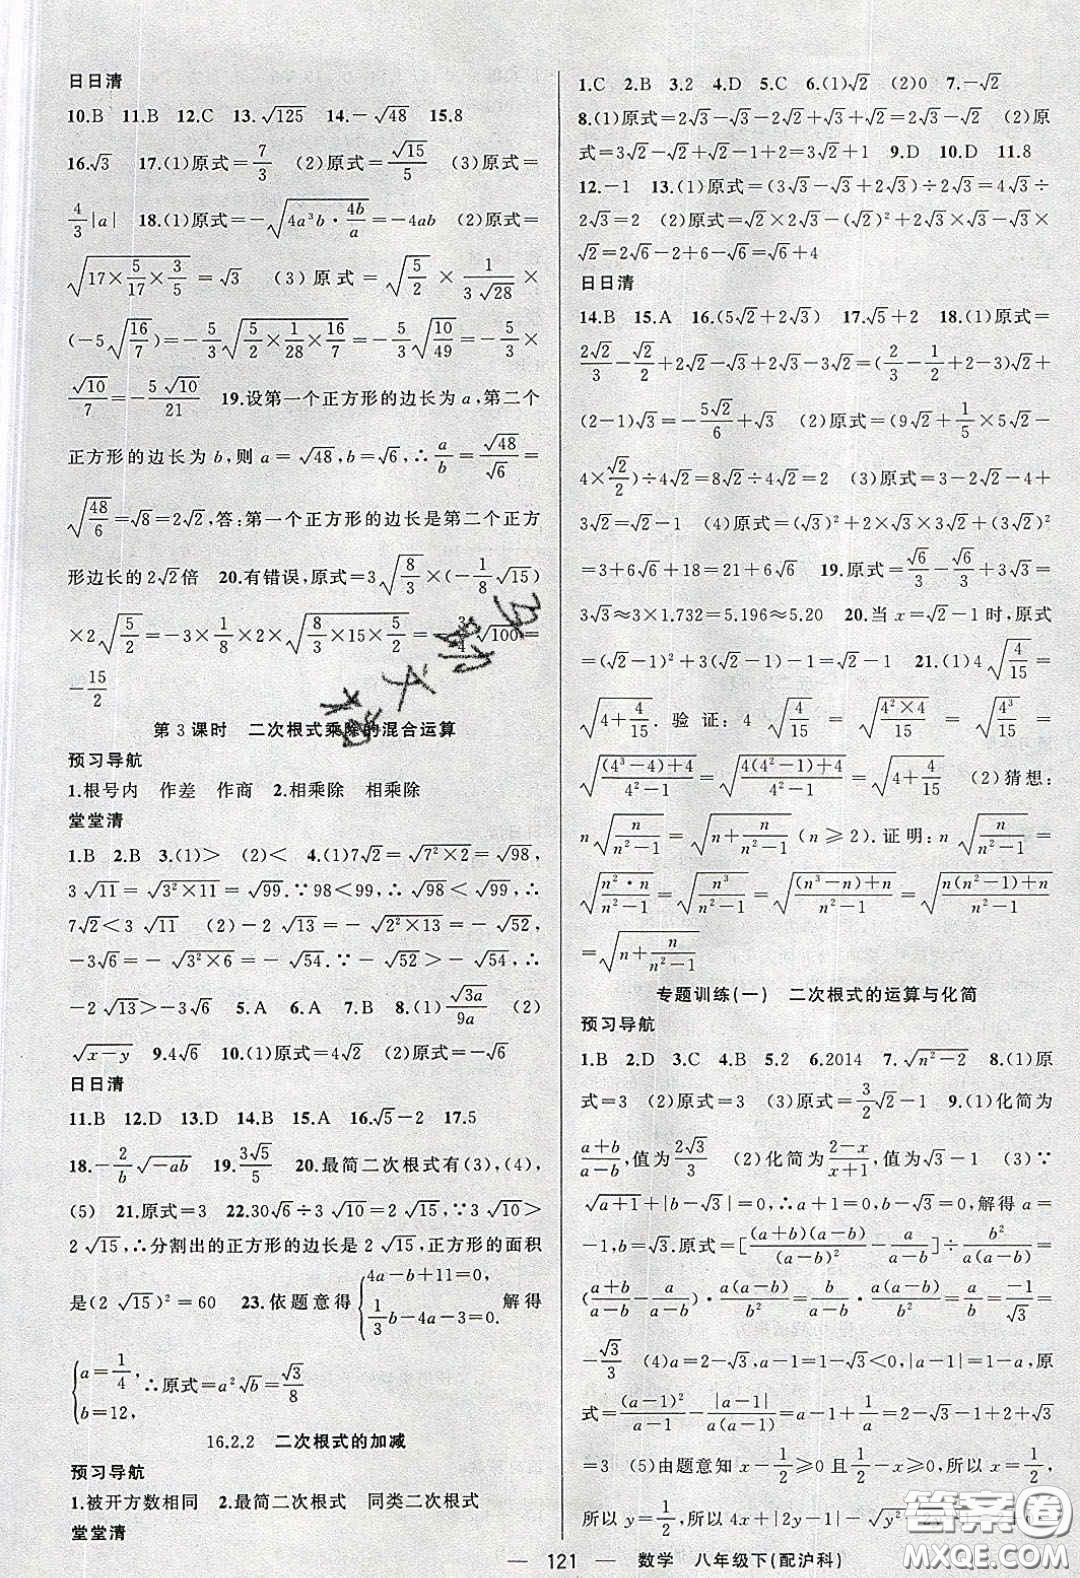 日日清
10.B 11.B 12.C 13.√125 14.-√48 15.8
16.√3 17.(1)原式=7/3 (2)原式=√15/5 (3)原式=
4/3|a| 18.(1)原式=-√(4a³b·4b/a)=-4ab (2)原式=
√(17×5/17×3/5)=√3 (3)原式=√(5/2)×1/(3√28)×
(-5√(16/7))=-5/3√(5/2×1/28×16/7)=-5/3√(10/49)=-5/3×
√10/7=-5√10/21 19.设第一个正方形的边长为a,第二个
正方形的边长为b,则a=√48,b=√6,∴a/b=√48/√6=
√(48/6)=√8=2√2,答:第一个正方形的边长是第二个正方
形边长的2√2倍 20.有错误,原式=3√(8/3)×(-1/8√15)
×2√(5/2)=-3×1/8×2×√(8/3×15×5/2)=-3/4√100=
-15/2
第3课时 二次根式乘除的混合运算
预习导航
1.根号内 作差 作商 2.相乘除 相乘除
堂堂清
1.B 2.B 3.(1)> (2)< 4.(1)7√2=√(7²×2)=√98,
3√11=√(3²×11)=√99.∵98<99,∴√98<√99,∴
7√2<3√11 (2)-2√13=-√(2²×13)=-√52,
-3√6=-√(3²×6)=-√54.∵-√54<-√52,∴
-2√13>-3√6 5.A 6.A 7.A 8.(1)√3a/9a (2)
√(x-y) 9.4√6 10.(1)原式=4√2 (2)原式=-√6
日日清
11.B 12.D 13.D 14.B 15.A 16.√5-2 17.5
18.-2/b√(-ab) 19.3√5/5 20.最简二次根式有(3),(4),
(5) 21.原式=3 22.30√6÷3√10=2√15,∵3√10>
2√15,∴分割出的正方形的边长是2√15,正方形的面积
是(2√15)²=60 23.依题意得{4a-b+11=0, 1/3b-4a-3=0. 解得
{a=1/4, b=12, ∴原式=a²√b=√3/8
16.2.2 二次根式的加减
预习导航
1.被开方数相同 2.最简二次根式 同类二次根式
堂堂清
1.C 2.B 3.2 4.D 5.C 6.(1)√2 (2)0 7.-√2
8.(1)原式=2√3-√3-√2=√3-√2 (2)原
式=3√2-2√2-√2+2√3+1=2√3+1 9.D 10.D 11.8
12.-1 13.(1)原式=(3√3-√3+2√3)÷2√3=4√3÷
2√3=2 (2)原式=√2×2√3-(√2)²+2√3×√3-√3×
√2=2√6-2+6-√6=√6+4
日日清
14.B 15.A 16.(5√2+2√3) 17.√5+2 18.(1)原式=
2√2/3-√2/2+2√3-√3+2√2-3√2=(2/3-1/2+2-3)√2+
(2-1)√3=-5√2/6+√3 (2)原式=(9√2+1/5×5√2-
4×√2/2)÷4√2=8√2÷4√2=2 (3)原式=2√2-4+
3√2=√2-1 (4)原式=(√3)²+2×√3×3√2+(3√2)²
=3+6√6+18=21+6√6 19.原式=√6/3-√6/3+3√3=
3√3≈3×1.732=5.196≈5.20 20.当x=√2-1时,原式
=(√2-1)²+(√2-1)-1=√2-1 21.(1)4√(4/15)=
√(4+4/15).验证:4√(4/15)=√(4²×4/15)=√(4³/15)=
√(((4³-4)+4)/(4²-1))=√((4(4²-1)+4)/(4²-1))=√(4+4/15) (2)猜想:
n√(n/(n²-1))=√(n+n/(n²-1))(n≥2).证明:n√(n/(n²-1))=
√(n²·n/(n²-1))=√(n³/(n²-1))=√(((n³-n)+n)/(n²-1))=√((n(n²-1)+n)/(n²-1))
=√(n+n/(n²-1))
专题训练(一) 二次根式的运算与化简
预习导航
1.B 2.D 3.C 4.B 5.2 6.2014 7.√(n²-2) 8.(1)原
式=3 (2)原式=3 (3)原式=3/2√2-1 9.(1)化简为
(a+b)/(a-b),值为2√3/3 (2)化简为(2-x)/(x+1),值为√3-1 (3)∵
√(a+1)+|b-√3|=0,∴a+1=0且b-√3=0,解得a=
-1,b=√3.原式=[(a+b)(a-b)/(a-b)²-a/(a-b)]÷b²/(a(a-b))=
((a+b)/(a-b)-a/(a-b))·a(a-b)/b²=b/(a-b)·a(a-b)/b²=a/b=-1/√3=
-√3/3 (4)a=2-√3,a-1=1-√3<0,|a-1|=1-a,原
式=(a-1)²/(a-1)-|a-1|/(a(a-1))=a-1+1/a=2-√3-1+2+√3
=3 (5)由题意知x-1/2≥0且1/2-x≥0,所以x=1/2,
所以y=1/2,所以4x+|2y-1|-√(y²
121 数学 八年级下(配沪科)
答案圈
MXQE.COM